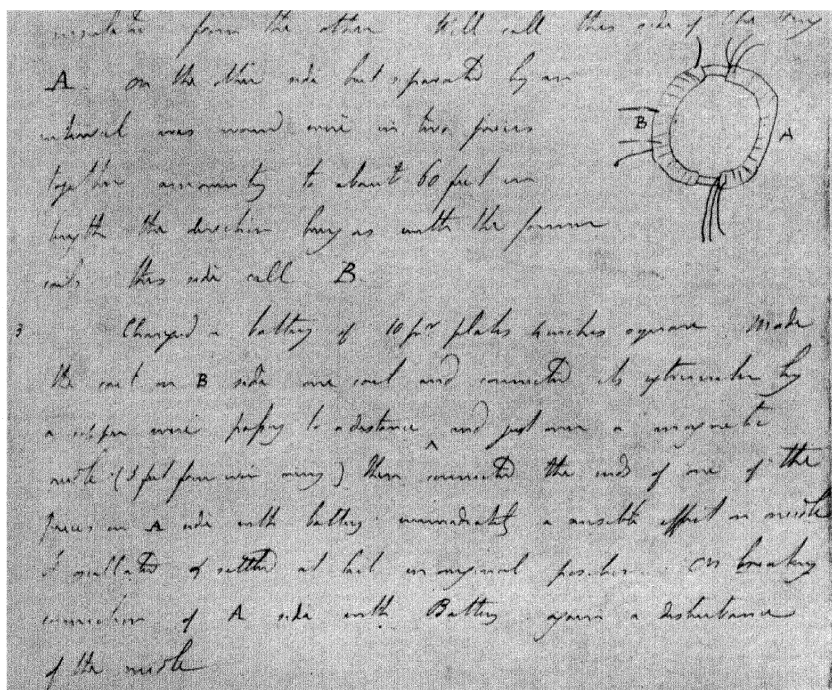 insulated from the other Will call this side of the ring
A. on the other side but separated by an
interval was wound wire in two pieces
together amounting to about 60 feet in
length the direction being as with the former
coils this side call B
B
A
3 Charged a battery of 10 pr plates 4 inches square Made
the coil on B side one coil and connected its extremities by
a copper wire passing to a distance and just over a magnetic
needle (3 feet from iron ring) then connected the ends of one of the
pieces on A side with battery immediately a sensible effect on needle
It oscillated & settled at last in original position. On breaking
connection of A side with Battery again a disturbance
of the needle